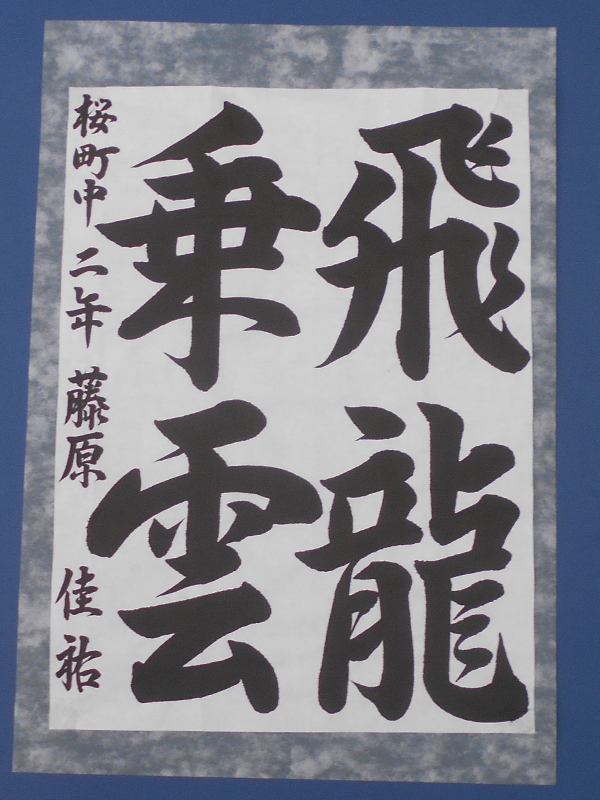 飛龍
乗雲
桜町中 二年 藤原 佳祐